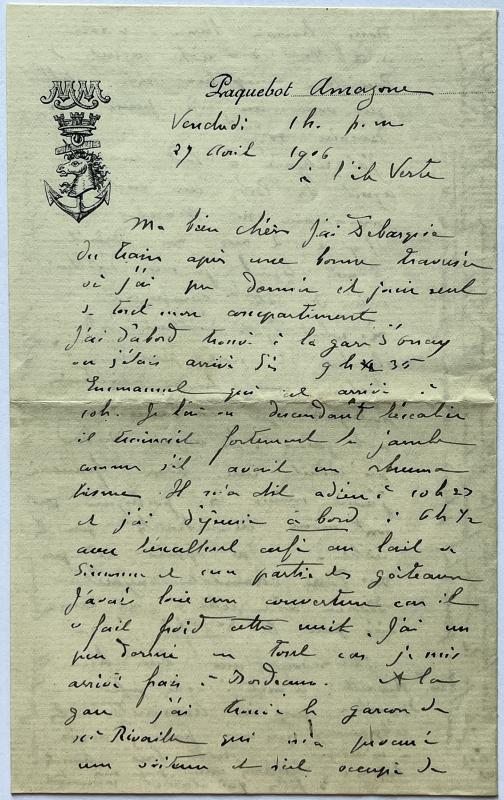 MM
Paquebot Amazone
Vendredi 1 h. p. m
27 Avril 1906
à l'île Verte
Ma bien chère j'ai débarqué
du train après une bonne traversée
où j'ai pu dormir et jouir seul
de tout mon compartiment
J'ai d'abord trouvé à la gare d'Orsay
où j'étais arrivé dès 9 h 35
Emmanuel qui est arrivé à
10h. Je l'ai vu descendant l'escalier
il traînait fortement la jambe
comme s'il avait un rhuma
tisme. Il m'a dit adieu à 10 h 27
et j'ai déjeuné à bord à 6 h 1/2
avec l'excellent café au lait de
Simone et une partie des gâteaux
J'avais loué une couverture car il
a fait froid cette nuit. J'ai un
peu dormi en tout cas je suis
arrivé frais à Bordeaux. A la
gare j'ai trouvé le garçon de
Rivaille qui m'a procuré
une voiture et s'est occupé de